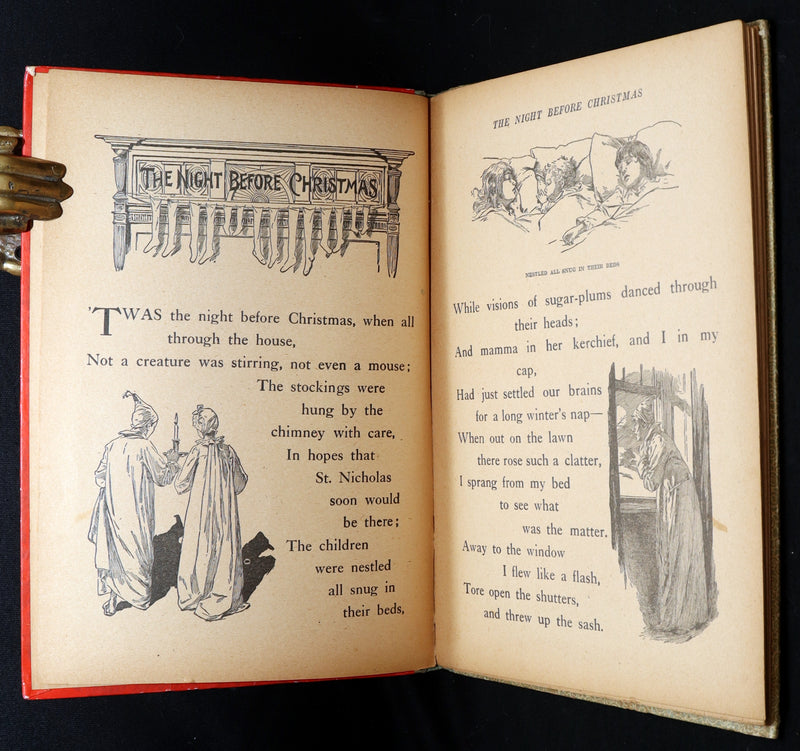 THE NIGHT BEFORE CHRISTMAS
'TWAS the night before Christmas, when all
through the house,
Not a creature was stirring, not even a mouse;
The stockings were
hung by the
chimney with care,
In hopes that
St. Nicholas
soon would
be there;
The children
were nestled
all snug in
their beds,
THE NIGHT BEFORE CHRISTMAS
NESTLED ALL SNUG IN THEIR BEDS
While visions of sugar-plums danced through
their heads;
And mamma in her kerchief, and I in my
cap,
Had just settled our brains
for a long winter's nap—
When out on the lawn
there rose such a clatter,
I sprang from my bed
to see what
was the matter.
Away to the window
I flew like a flash,
Tore open the shutters,
and threw up the sash.